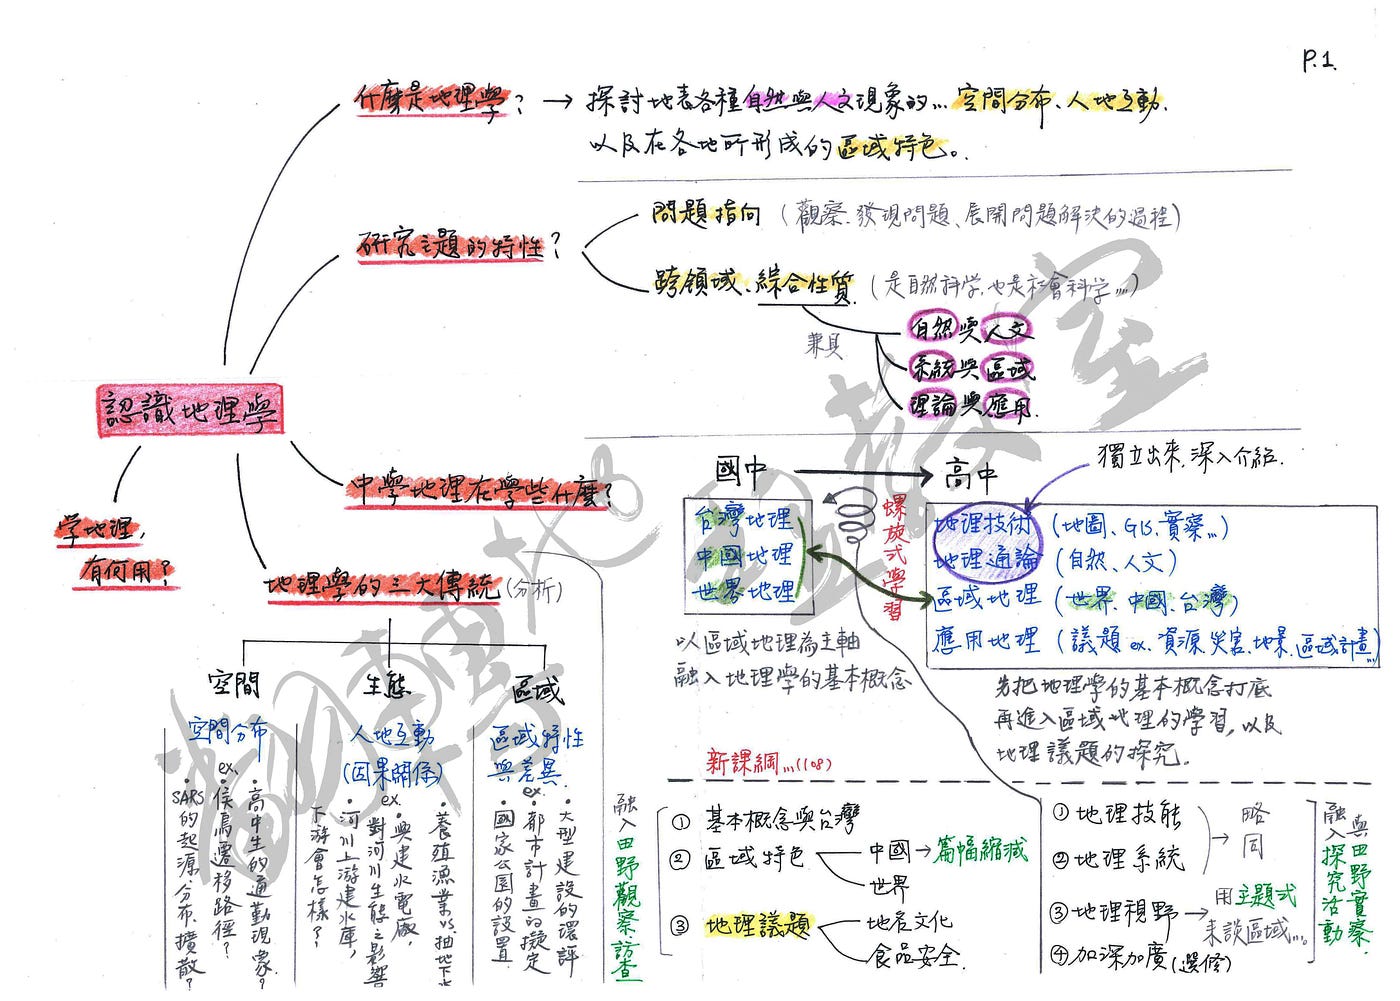 P.1.
什麼是地理學? → 探討地表各種自然與人文現象的... 空間分布、人地互動.
以及在各地所形成的區域特色。
研究主題的特性?
問題指向 (觀察.發現問題、展開問題解決的過程)
跨領域、綜合性質. (是自然科學,也是社會科學...)
兼具
自然與人文
系統與區域
理論與應用.
認識地理學
学地理,
有何用?
中學地理在學些什麼?
國中
高中
獨立出來,深入介紹.
台灣地理
中國地理
世界地理
螺旋式學習
地理技術 (地圖、GIS、實察...)
地理通論 (自然、人文)
區域地理 (世界、中國、台灣)
應用地理 (議題 ex.資源.災害.地景.區域計畫...)
以區域地理為主軸
融入地理學的基本概念
先把地理學的基本概念打底
再進入區域地理的學習,以及
地理議題的探究.
地理學的三大傳統(分析)
空間
空間分布
ex.
・高中生的通勤現象?
・候鳥遷移路徑?
・SARS的起源.分布.擴散?
生態
人地互動
(因果關係)
ex.
・養殖漁業vs.抽地下水
・興建水電廠,
對河川生態之影響
・河川上游建水庫,
下游會怎樣??
區域
區域特性
與差異.
ex.
・大型建設的環評
・都市計畫的擬定
・國家公園的設置
融入田野觀察.訪查
新課綱...(108)
① 基本概念與台灣
② 區域特色
中國→篇幅縮減
世界
③ 地理議題
地名文化
食品安全.
① 地理技能
② 地理系統
→ 略同
③ 地理視野→用主題式
來談區域...
④ 加深加廣(選修)
與田野實察.
融入探究活動
翻轉地理教室